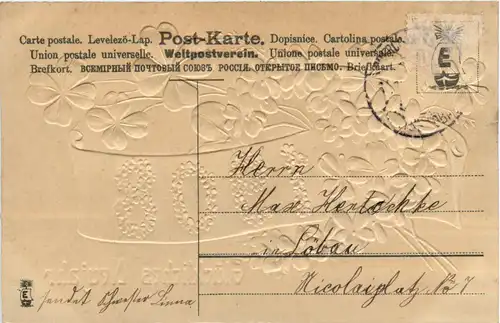 Carte postale. Levelező-Lap. Post-Karte. Dopisnice. Cartolina postale.
Union postale universelle. Weltpostverein. Unione postale universale.
Brefkort. ВСЕМІРНЫЙ ПОЧТОВЫЙ СОЮЗЪ РОССІЯ. ОТКРЫТОЕ ПИСЬМО. Briefkaart.
Herrn
Max Hentschke
in Löbau
Nicolaiplatz No 7
sendet Schwester Linna
E